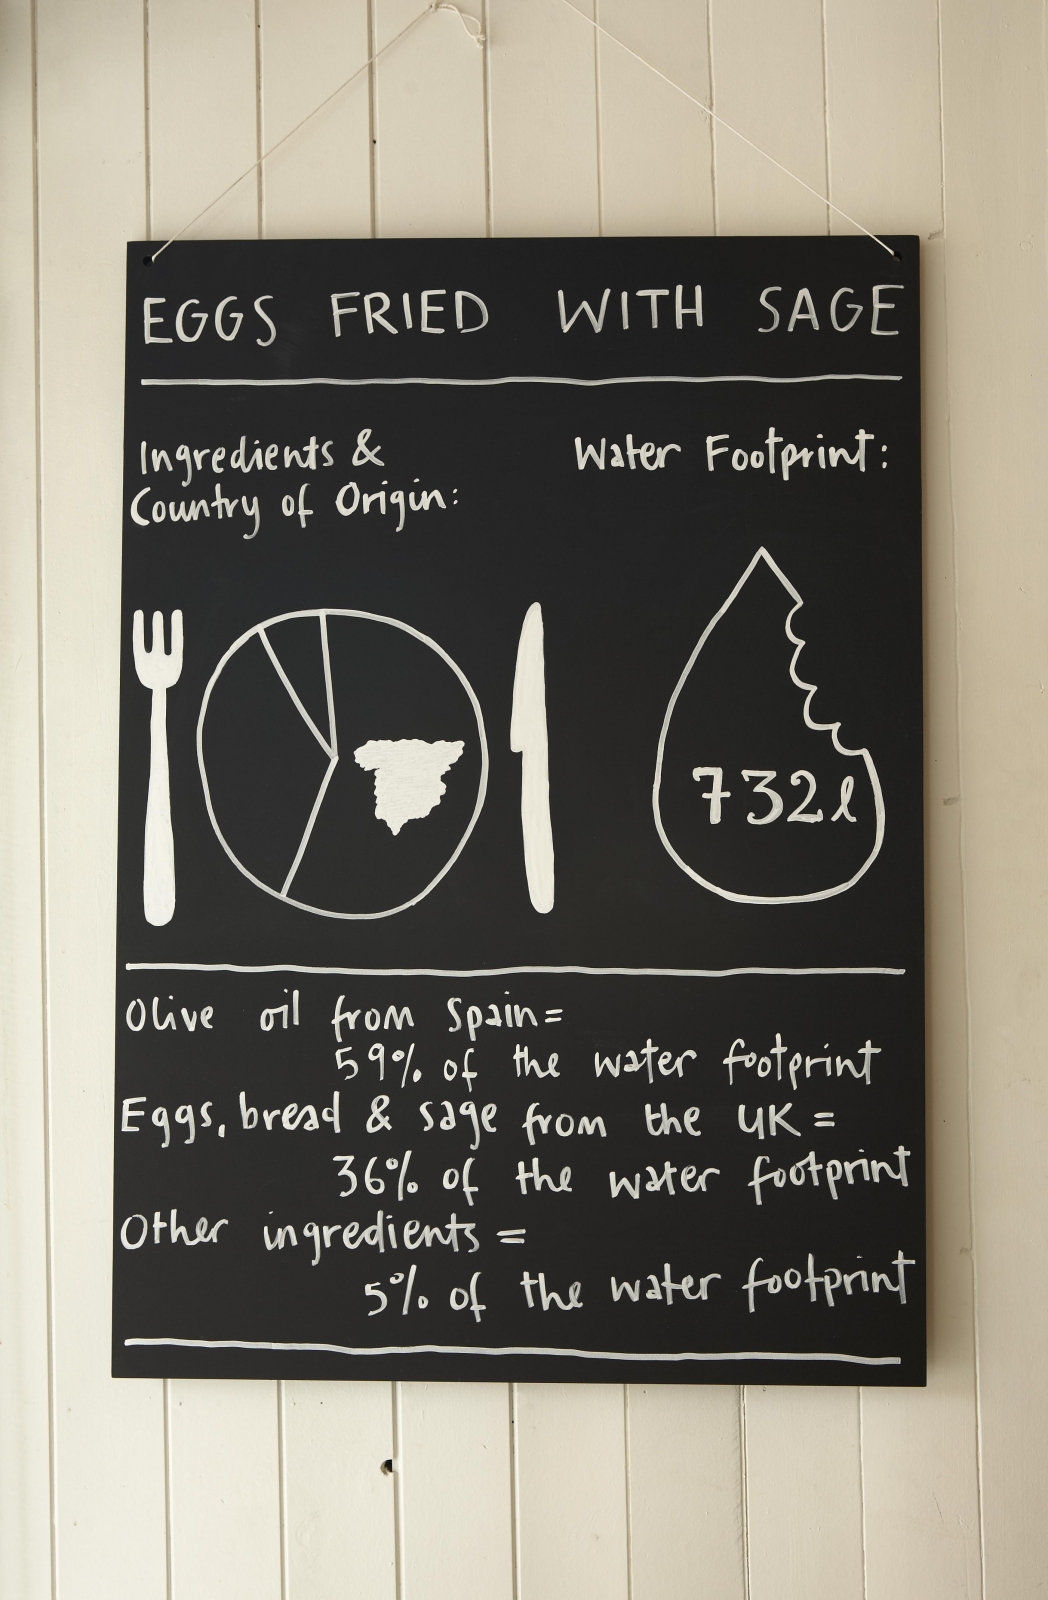 EGGS FRIED WITH SAGE
Ingredients &
Country of Origin:
Water Footprint:
732l
Olive oil from Spain=
59% of the water footprint
Eggs, bread & sage from the UK =
36% of the water footprint
Other ingredients =
5% of the water footprint